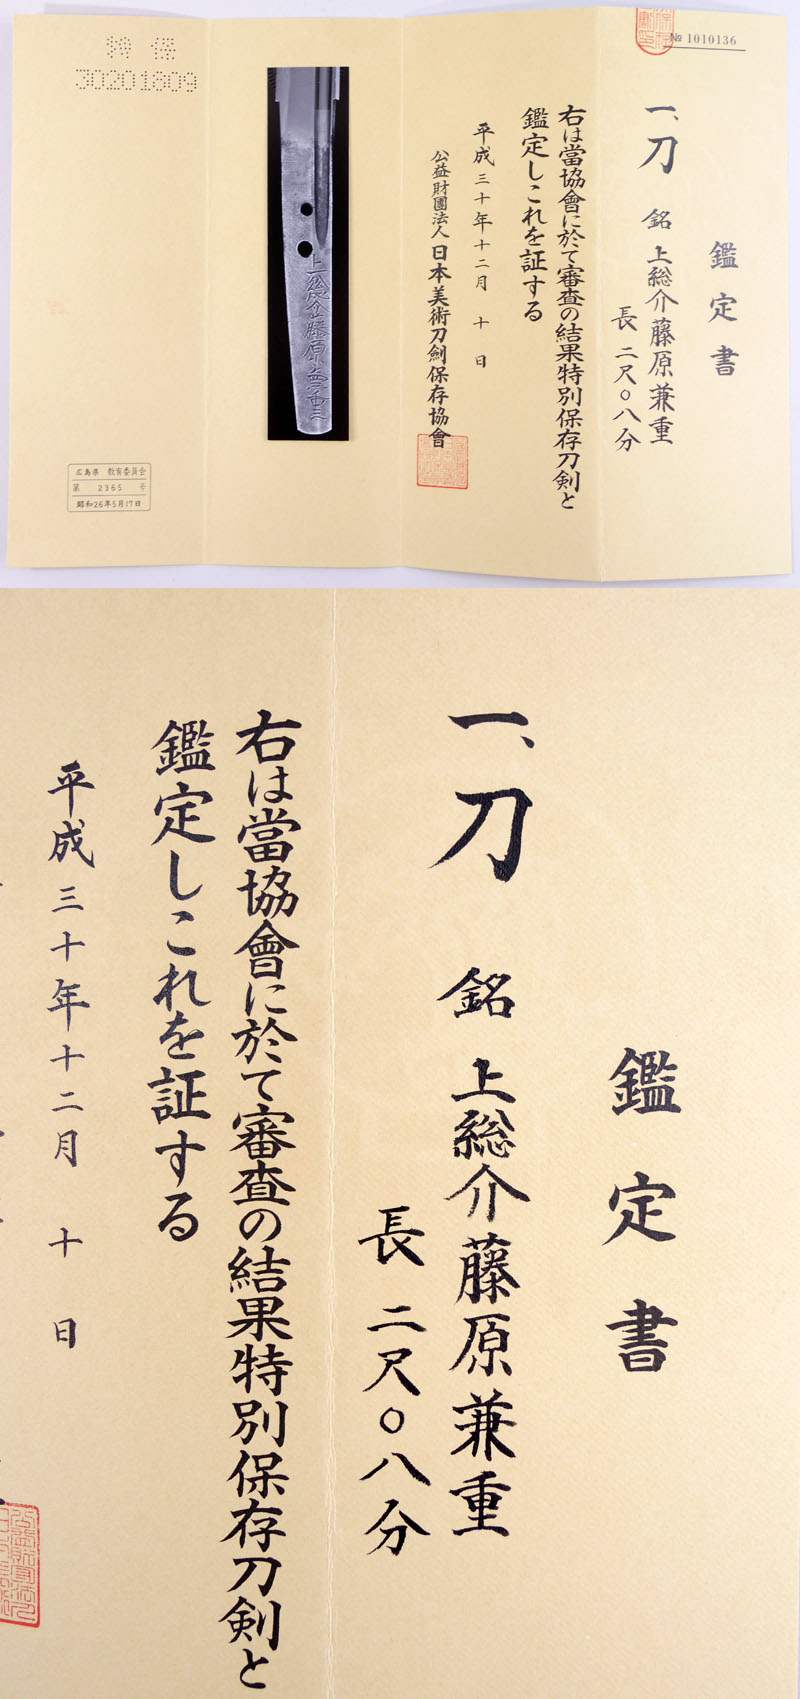 № 1010136
鑑定書
一、刀 銘 上総介藤原兼重
長 二尺〇八分
右は當協會に於て審査の結果特別保存刀剣と
鑑定しこれを証する
平成三十年十二月 十 日
公益財團法人 日本美術刀劍保存協會
上総介藤原兼重
特 保
30201809
広島県 教育委員会
第 2365 号
昭和26年5月17日
鑑定書
一、刀 銘 上総介藤原兼重
長 二尺〇八分
右は當協會に於て審査の結果特別保存刀剣と
鑑定しこれを証する
平成三十年十二月 十 日